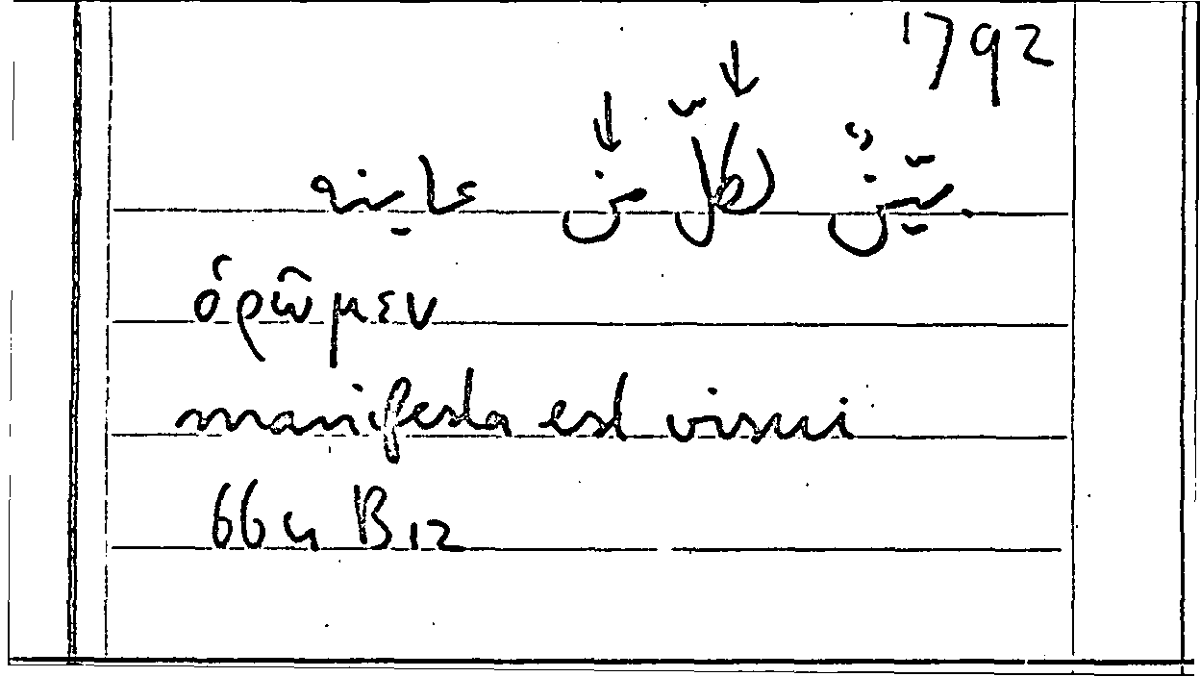 1792
بيّن لكلّ من عاينه
ὁρῶμεν
manifesta est visui
664 B 12